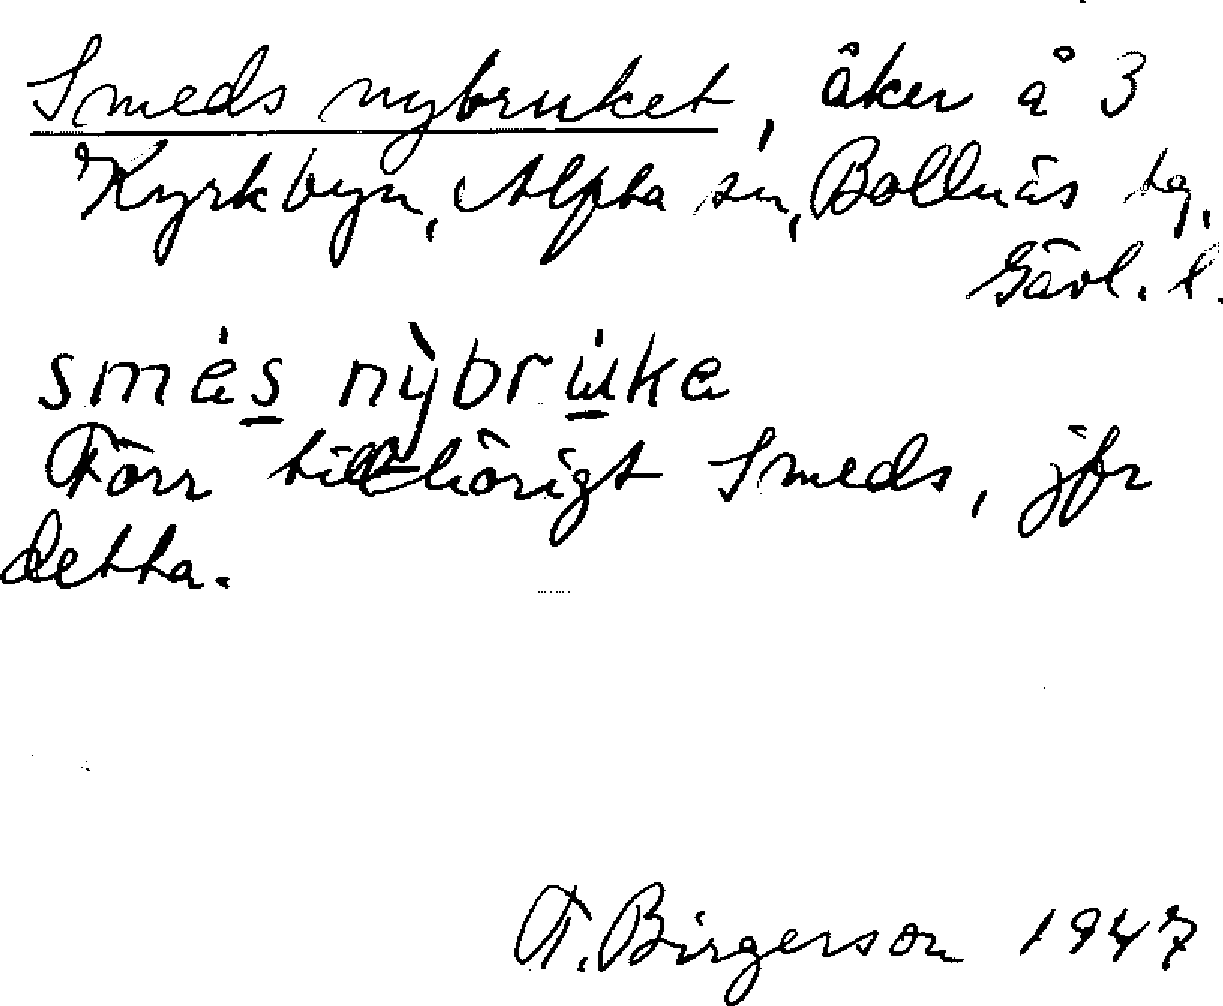 Smeds nybruket, åker å 3
Kyrkbyn, Alfta sn, Bollnäs tg,
Gävl. l.
smés nỳbrúka
Förr tillhörigt Smeds, jfr
detta.
F. Birgerson 1947